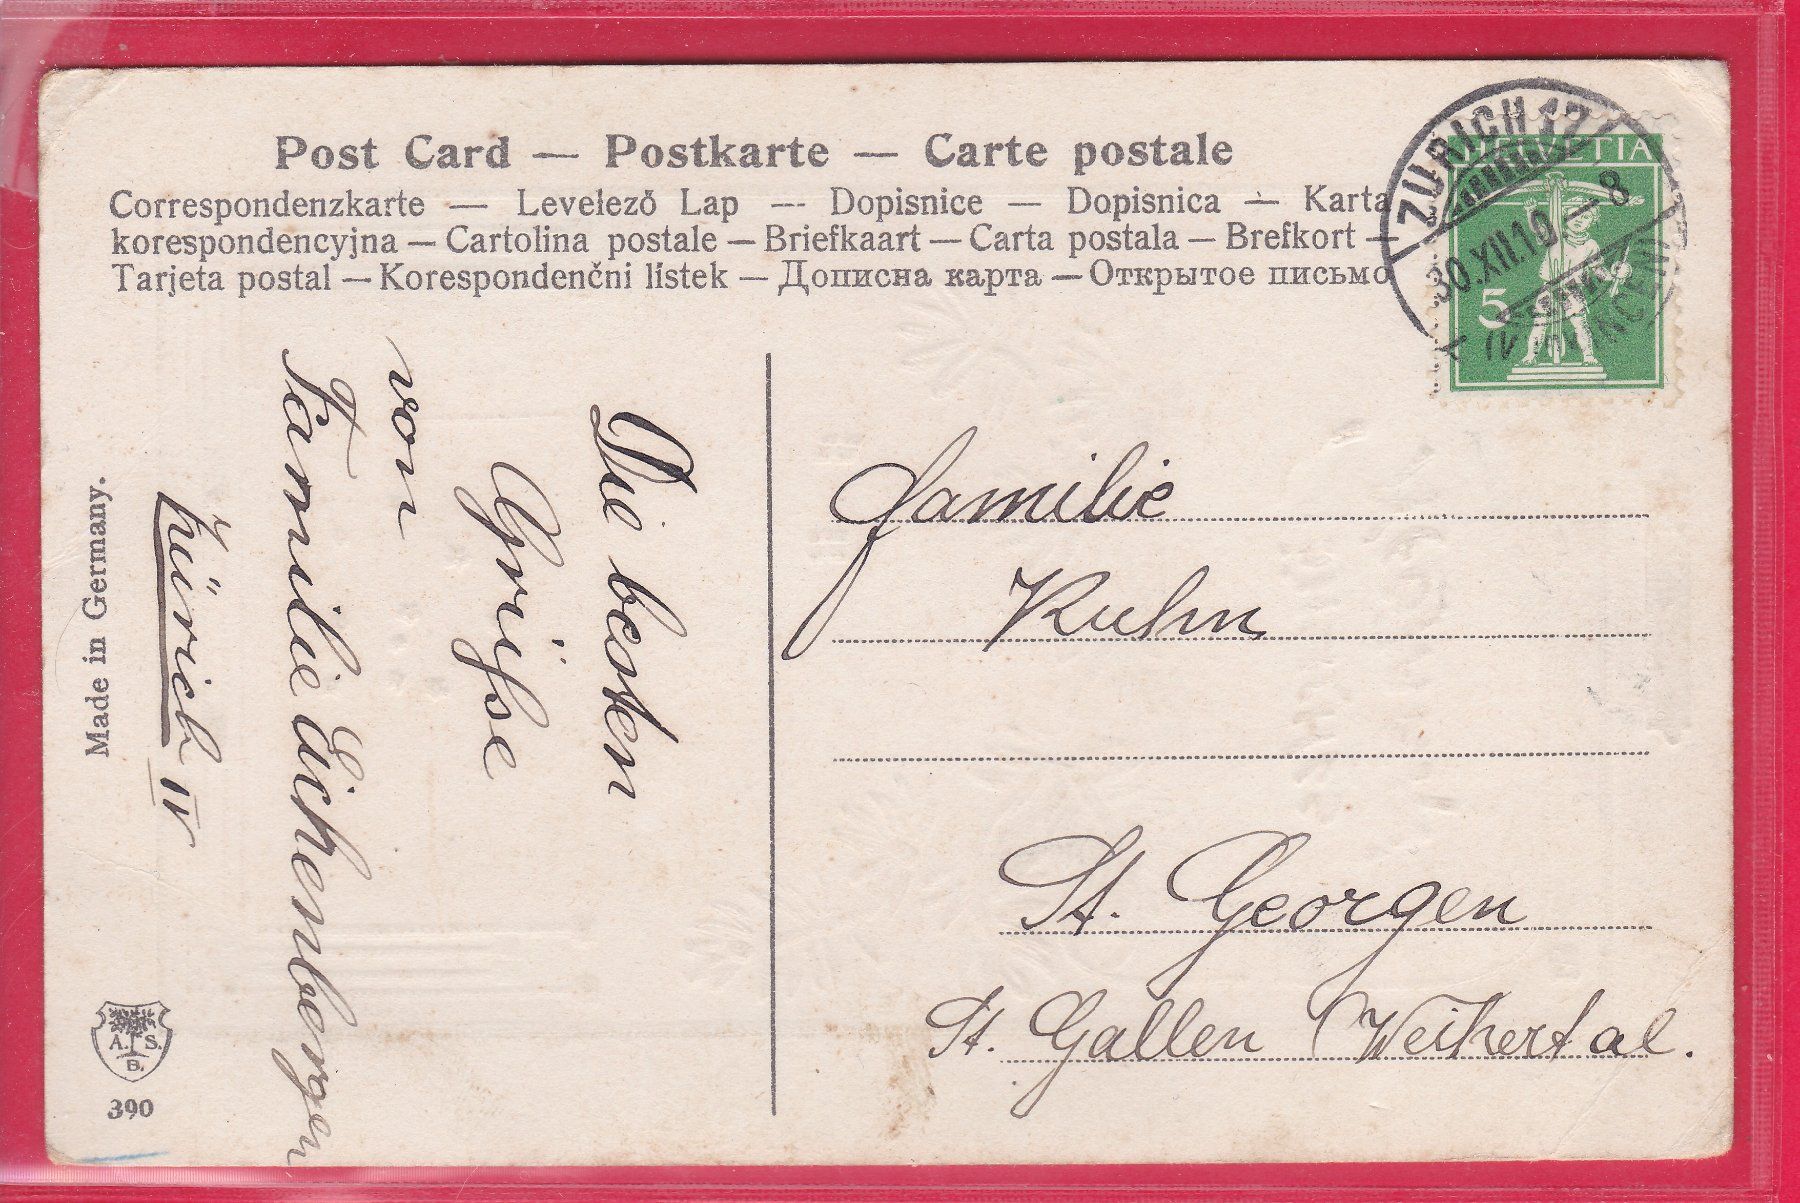 Post Card — Postkarte — Carte postale
Correspondenzkarte — Levelező Lap — Dopisnice — Dopisnica — Karta
korespondencyjna — Cartolina postale — Briefkaart — Carta postala — Brefkort —
Tarjeta postal — Korespondenčni listek — Дописна карта — Открытое письмо
ZÜRICH 17
HELVETIA
30.XII.10.—8
5
Die besten
Grüße
von
Familie Eichenberger
Zürich IV
Made in Germany.
A. S.
B.
390
Familie
Kuhn
St. Georgen
St. Gallen Weihertal.